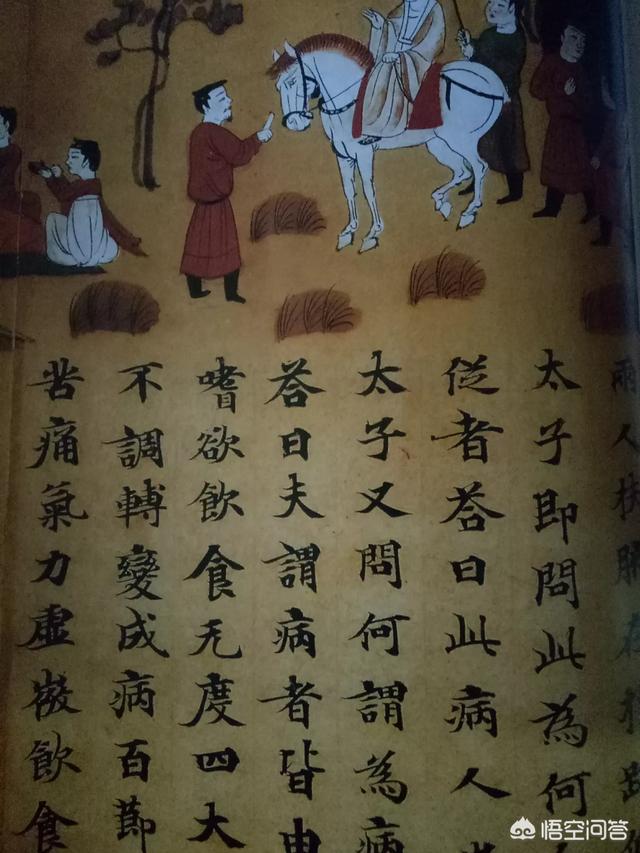 兩人扶
太子即問此為何
従者荅曰此病人
太子又問何謂為病
荅曰夫謂病者皆由
嗜欲飲食无度四大
不調轉變成病百節
苦痛氣力虛微飲食
悟空问答